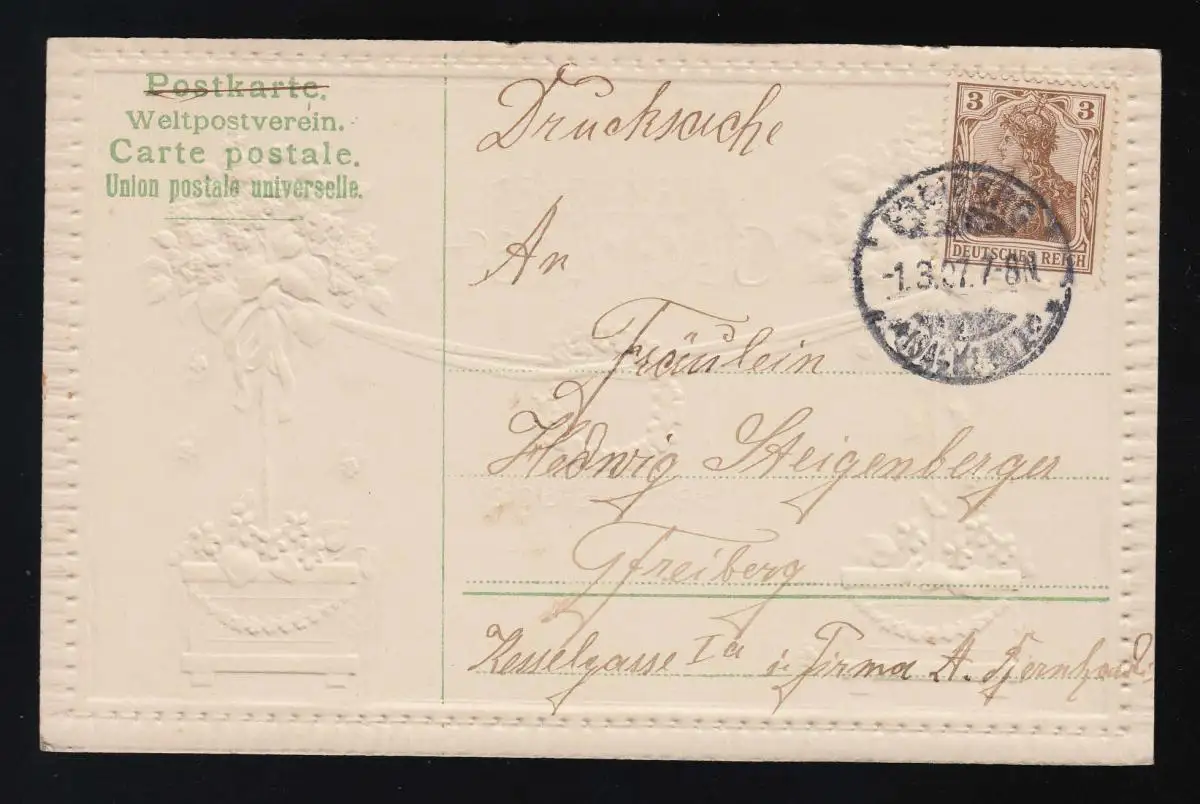 Postkarte.
Weltpostverein.
Carte postale.
Union postale universelle.
Drucksache
3 3
DEUTSCHES REICH
-1.3.07.7-8N.
An
Fräulein
Hedwig Steigenberger
Freiberg
Kesselgasse Ia i. Firma A.